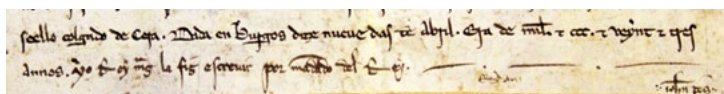 seello colgado de Cera. Dada en Burgos dize nueue dias de Abril. Era de mill. e ccc. e veynt e tres
annos. yo la fiz escreuir por mandado del Rey.